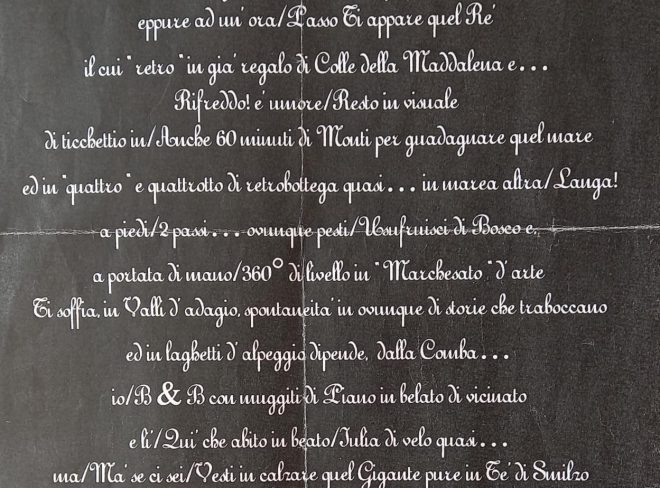 eppure ad un' ora/Passo Ti appare quel Ré
il cui "retro" in gia' regalo di Colle della Maddalena e...
Rifreddo! e' umore/Resto in visuale
di ticchettio in/Anche 60 minuti di Monti per guadagnare quel mare
ed in "quattro" e quattrotto di retrobottega quasi... in marea altra/Langa!
a piedi/2 passi... ovunque pesti/Usufruisci di Bosco e,
a portata di mano/360° di livello in "Marchesato" d'arte
Ti soffia, in Valli d' adagio, spontaneita' in ovunque di storie che traboccano
ed in laghetti d' alpeggio dipende, dalla Comba...
io/B & B con muggiti di Piano in belato di vicinato
e li'/Qui' che abito in beato/Julia di velo quasi...
ma/Ma' se ci sei/Vesti in calzare quel Gigante pure in Te' di Smilzo